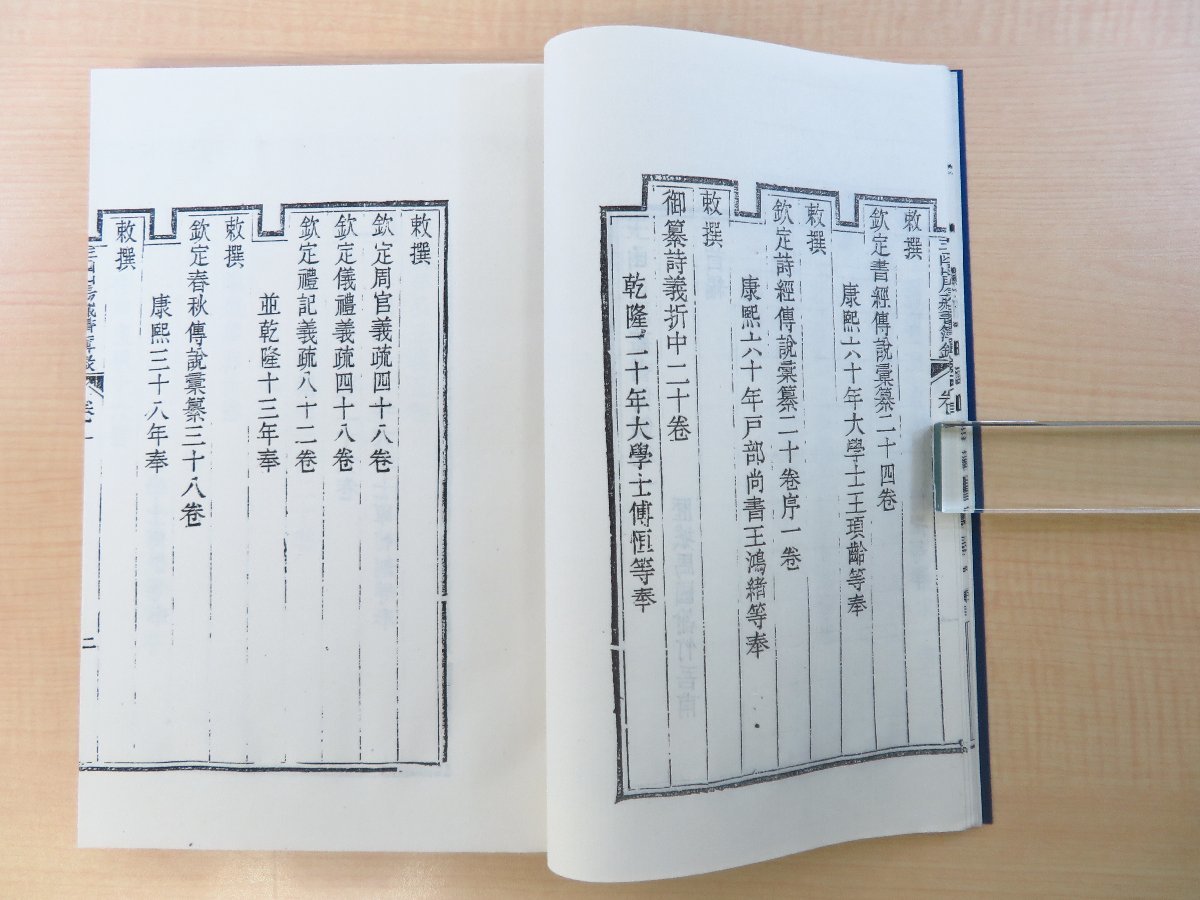 敕撰
欽定書經傳說彙纂二十四卷
康熙六十年大學士王頊齡等奉
敕撰
欽定詩經傳說彙纂二十卷序一卷
康熙六十年戸部尚書王鴻緒等奉
敕撰
御纂詩義折中二十卷
乾隆二十年大學士傅恒等奉
敕撰
欽定周官義疏四十八卷
欽定儀禮義疏四十八卷
欽定禮記義疏八十二卷
並乾隆十三年奉
敕撰
欽定春秋傳說彙纂三十八卷
康熙三十八年奉
敕撰
二